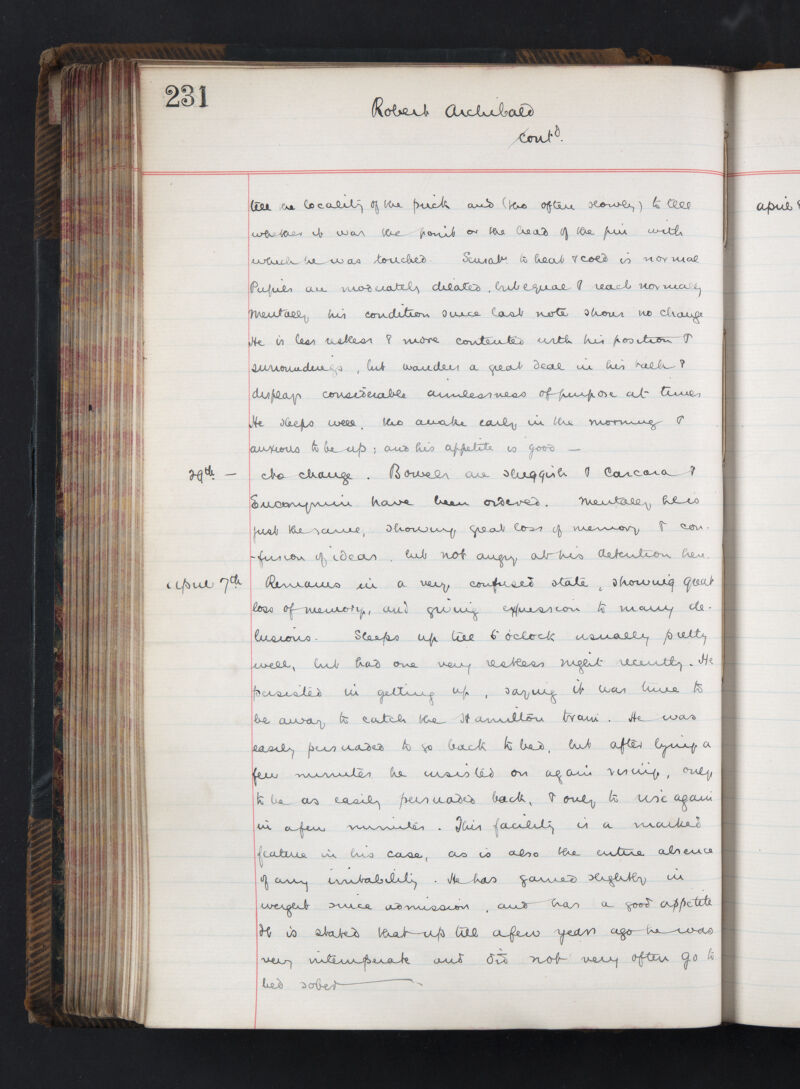 231
Robert Archibald
Contd.
tell the locality of the prick and (tho often slowly) to tell
whether it was the point or the head of the pin with
which he was touched. Sensatn to heat & cold is normal
Pupils are moderately dilated, but equal & react normally
Mentally his condition since last note shows no change
He is less restless & more contented with his position &
surroundings, but wanders a great deal in his talk &
displays considerable aimlessness of purpose at times
He sleeps well, tho awake early in the morning &
anxious to be up; and his appetite is good —
29th — No change. Bowels are sluggish & Cascara &
Euonymin have been ordered. Mentally he is
just the same, showing great loss of memory & con-
-fusion of ideas. but not angry at his detention here.
April 7th Remains in a very confused state, showing great
loss of memory, and giving expression to many de-
lusions. Sleeps up till 6 oclock usually pretty
well, but had one very restless night recently. He
persisted in getting up, saying it was time to
be away to catch the Hamilton train. He was
easily persuaded to go back to bed, but after lying a
few minutes he insisted on again rising, only
to be as easily persuaded back, & only to rise again
in a few minutes. This facility is a marked
feature in his case, as is also the entire absence
of any irritability. He has gained slightly in
weight since admission, and has a good appetite
It is stated that up till a few years ago he was
very intemperate and did not very often go to
bed sober —
April